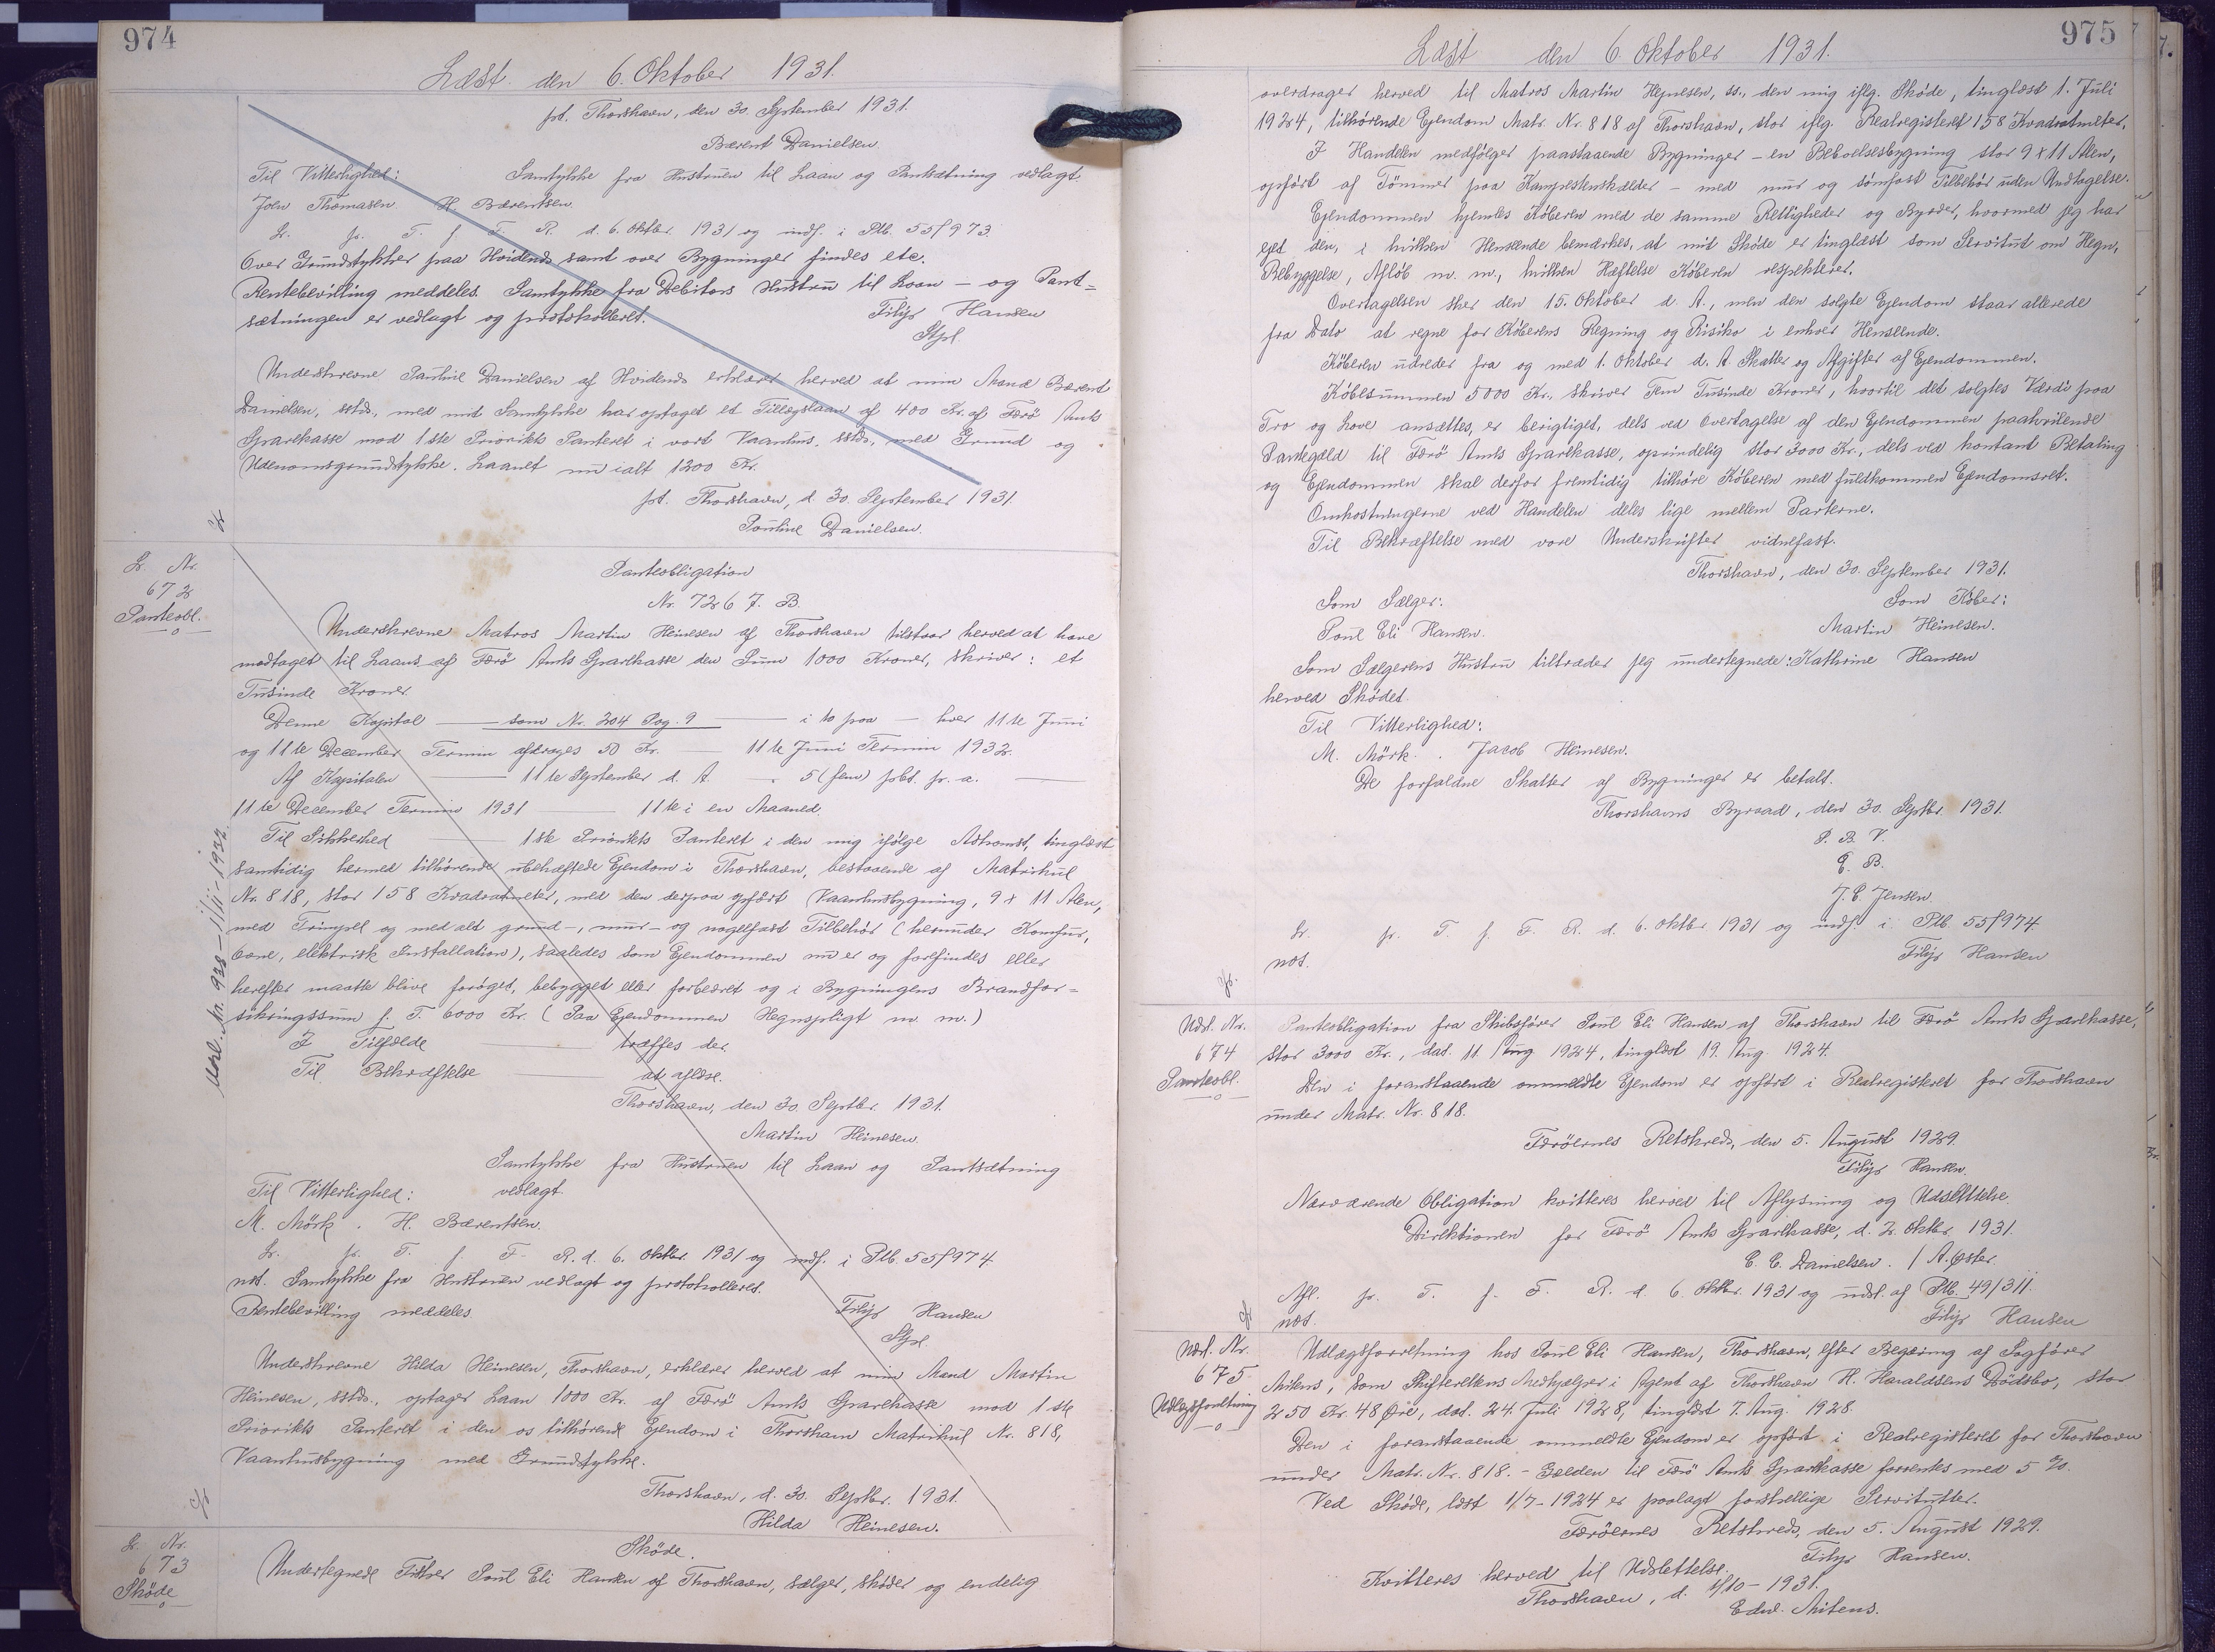 974
Læst den 6. Oktober 1931.
pt. Thorshavn, den 30. September 1931.
Bærent Danielsen.
Til Vitterlighed: Samtykke fra Hustruen til Laan og Pantsætning vedlagt.
Joen Thomasen H. Bærentsen.
Lr. fr. T. f. F. R. d. 6. Oktbr. 1931 og indf. i Ptb. 55f973.
Over Grundstykker paa Hvidenæs samt over Bygninger findes etc.
Rentebevilling meddeles. Samtykke fra Debitors Hustru til Laan – og Pant=
sætningen er vedlagt og protokolleret.
Filip Hansen
Undeskrevne Pauline Danielsen af Hvidenæs erklærer herved at min Mand Bærent
Danielsen, sstds., med mit Samtykke har optaget et Tillægslaan af 400 Kr. af Færö Amts
Sparekasse mod 1.ste Prioritets Panteret i vort Vaanhus, sstds., med Grund og
Udenomsgrundstykke. Laanet nu ialt 1200 Kr.
pt. Thorshavn, d. 30. September 1931.
Pauline Danielsen.
Lr. Nr.
672
Panteobl.
Panteobligation
Nr. 7267. B.
Underskrevne Matros Martin Heinesen af Thorshavn tilstaar herved at have
modtaget til Laans af Færö Amts Sparekasse den Sum 1000 Kroner, skriver: et
Tusinde Kroner.
Denne Kapital — som Nr. 204 Pag. 9 — i to paa — hver 11te Juni
og 11te December Termin afdrages 50 Kr. — 11te Juni Termin 1932.
Af Kapitalen — 11te September d. A. 5 (fem) pobt. pr. a. —
11te December Termin 1931 — 11te i en Maaned.
Til Sikkerhed — 1ste Prioritets Panteret i den mig ifølge Adkomst, tinglæst
samtidig hermed tilhørende ubehæftede Ejendom i Thorshavn, bestaaende af Matrikul
Nr. 818, stor 158 Kvadratmeter, med den derpaa opført Vaanhusbygning, 9 x 11 Alen,
med Trimpel og med alt grund-, mur- og nagelfast Tilbehör (herunder Komfur,
Ovne, elektrisk Installation), saaledes som Ejendommen nu er og forefindes eller
herefter maatte blive forøget, bebygget eller forbedret og i Bygningens Brandfor=
sikringssum f. T. 6000 Kr. (Paa Ejendommen Hegnspligt m. m.)
I Tilfælde — træffes der.
Til Bekræftelse — at aflæse.
Thorshavn, den 30. Septbr. 1931.
Martin Heinesen.
Samtykke fra Hustruen til Laan og Pantsætning
Til Vitterlighed: vedlagt.
M. Mörk. H. Bærentsen.
Lr. fr. T. f. F. R. d. 6. Oktbr. 1931 og indf. i Ptb. 55f974.
not. Samtykke fra Hustruen vedlagt og protokolleret.
Rentebevilling meddeles
Filip Hansen
Underskrevne Hilda Heinesen, Thorshavn, erklærer herved at min Mand Martin
Heinesen, sstds., optager Laan 1000 Kr. af Færö Amts Sparekasse mod 1.ste
Prioritets Panteret i den os tilhørende Ejendom i Thorshavn Matrikul Nr. 818,
Vaanhusbygning med Grundstykke.
Thorshavn, d. 30. Septbr. 1931.
Hilda Heinesen.
Lr. Nr.
673
Skøde
Skøde.
Undertegnede Fisker Poul Eli Hansen af Thorshavn, sælger, skøder og endelig
975
Læst den 6. Oktober 1931.
overdrager herved til Matros Martin Hejnesen, ss., den mig iflg. Skøde, tinglæst 1. Juli
1924, tilhörende Ejendom Matr. Nr. 818 af Thorshavn, stor iflg. Realregisteret 158 Kvadratmeter.
I Handelen medfølger paastaaende Bygninger – en Beboelsesbygning stor 9 x 11 Alen,
opført af Tömmer paa Kampestenskælder – med mur og sömfast Tilbehör uden Undtagelse.
Ejendommen hjemles Köberen med de samme Rettigheder og Byrder, hvormed jeg har
ejet den, i hvilken Henseende bemærkes, at mit Skøde er tinglæst som Servitut om Hegn,
Bebyggelse, Afløb m. m., hvilken Hæftelse Køberen respekterer.
Overtagelsen sker den 15. Oktober d. A., men den solgte Ejendom staar allerede
fra Dato at regne for Köberens Regning og Risiko i enhver Henseende.
Köberen udreder fra og med 1. Oktober d. A. Skatter og Afgifter af Ejendommen.
Købesummen 5000 Kr., skriver Fem Tusinde Kroner, hvortil det solgtes Værdi paa
Tro og Love ansættes, er berigtiget, dels ved Overtagelse af den Ejendommen paahvilende
Pantegæld til Færö Amts Sparekasse, oprindelig stor 3000 Kr., dels ved kontant Betaling
og Ejendommen skal derfor fremtidig tilhöre Köberen med fuldkommen Ejendomsret.
Omkostningerne ved Handelen deles lige mellem Parterne.
Til Bekræftelse med vore Underskrifter vidnefast.
Thorshavn, den 30. September 1931.
Som Sælger: Som Køber:
Poul Eli Hansen. Martin Heinesen.
Som Sælgerens Hustru tiltræder jeg undertegnede: Kathrine Hansen
herved Skødet.
Til Vitterlighed:
M. Mörk. Jacob Heinesen.
De forfaldne Skatter af Bygninger er betalt.
Thorshavns Byraad, den 30. Septbr. 1931.
P. B. V.
E. B.
J. C. Jensen.
Lr. fr. T. f. F. R. d. 6. Oktbr. 1931 og indf. i Ptb. 55f974.
not.
Filip Hansen
Udsl. Nr.
674
Panteobl.
Panteobligation fra Skibsfører Poul Eli Hansen af Thorshavn til Færö Amts Sparekasse,
stor 3000 Kr., dat. 11. Aug. 1924, tinglæst 19. Aug. 1924.
Den i foranstaaende ommeldte Ejendom er opført i Realregisteret for Thorshavn
under Matr. Nr. 818.
Færöernes Retskreds, den 5. August 1929.
Filip Hansen.
Nærværende Obligation kvitteres herved til Aflysning og Udslettelse.
Direktionen for Færö Amts Sparekasse, d. 2. Oktbr. 1931.
C. C. Danielsen. / A. Øster.
Afl. fr. T. f. F. R. d. 6. Oktbr. 1931 og udsl. af Ptb. 49/311.
not.
Filip Hansen
Udsl. Nr.
675
Udlægsforretning
Udlægsforretning hos Poul Eli Hansen, Thorshavn, efter Begæring af Sagfører
Mitens, som Skifterettens Medhjælper i Agent af Thorshavn H. Haraldsens Dödsbo, stor
250 Kr. 48 Øre, dat. 24. Juli 1928, tinglæst 7. Aug. 1928.
Den i foranstaaende ommeldte Ejendom er opført i Realregisteret for Thorshavn
under Matr. Nr. 818. – Gælden til Færö Amts Sparekasse forrentes med 5 %.
Ved Skøde, læst 1/7-1924 er paalagt forskellige Servitutter.
Færöernes Retskreds, den 5. August 1929.
Filip Hansen.
Kvitteres herved til Udslettelse.
Thorshavn, d. 1/10 – 1931.
Edw. Mitens.